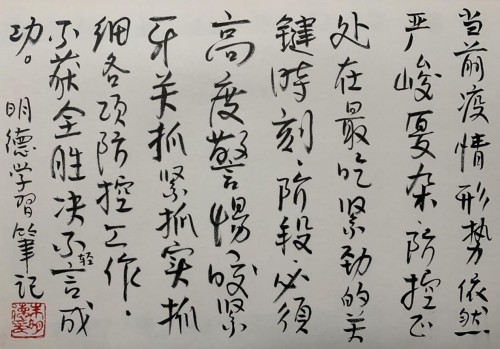 当前疫情形势依然
严峻复杂、防控正
处在最吃紧劲的关
键时刻、阶段、必须
高度警惕、咬紧
牙关抓紧抓实抓
细各项防控工作、
不获全胜决不轻言成
功。
明德学习笔记